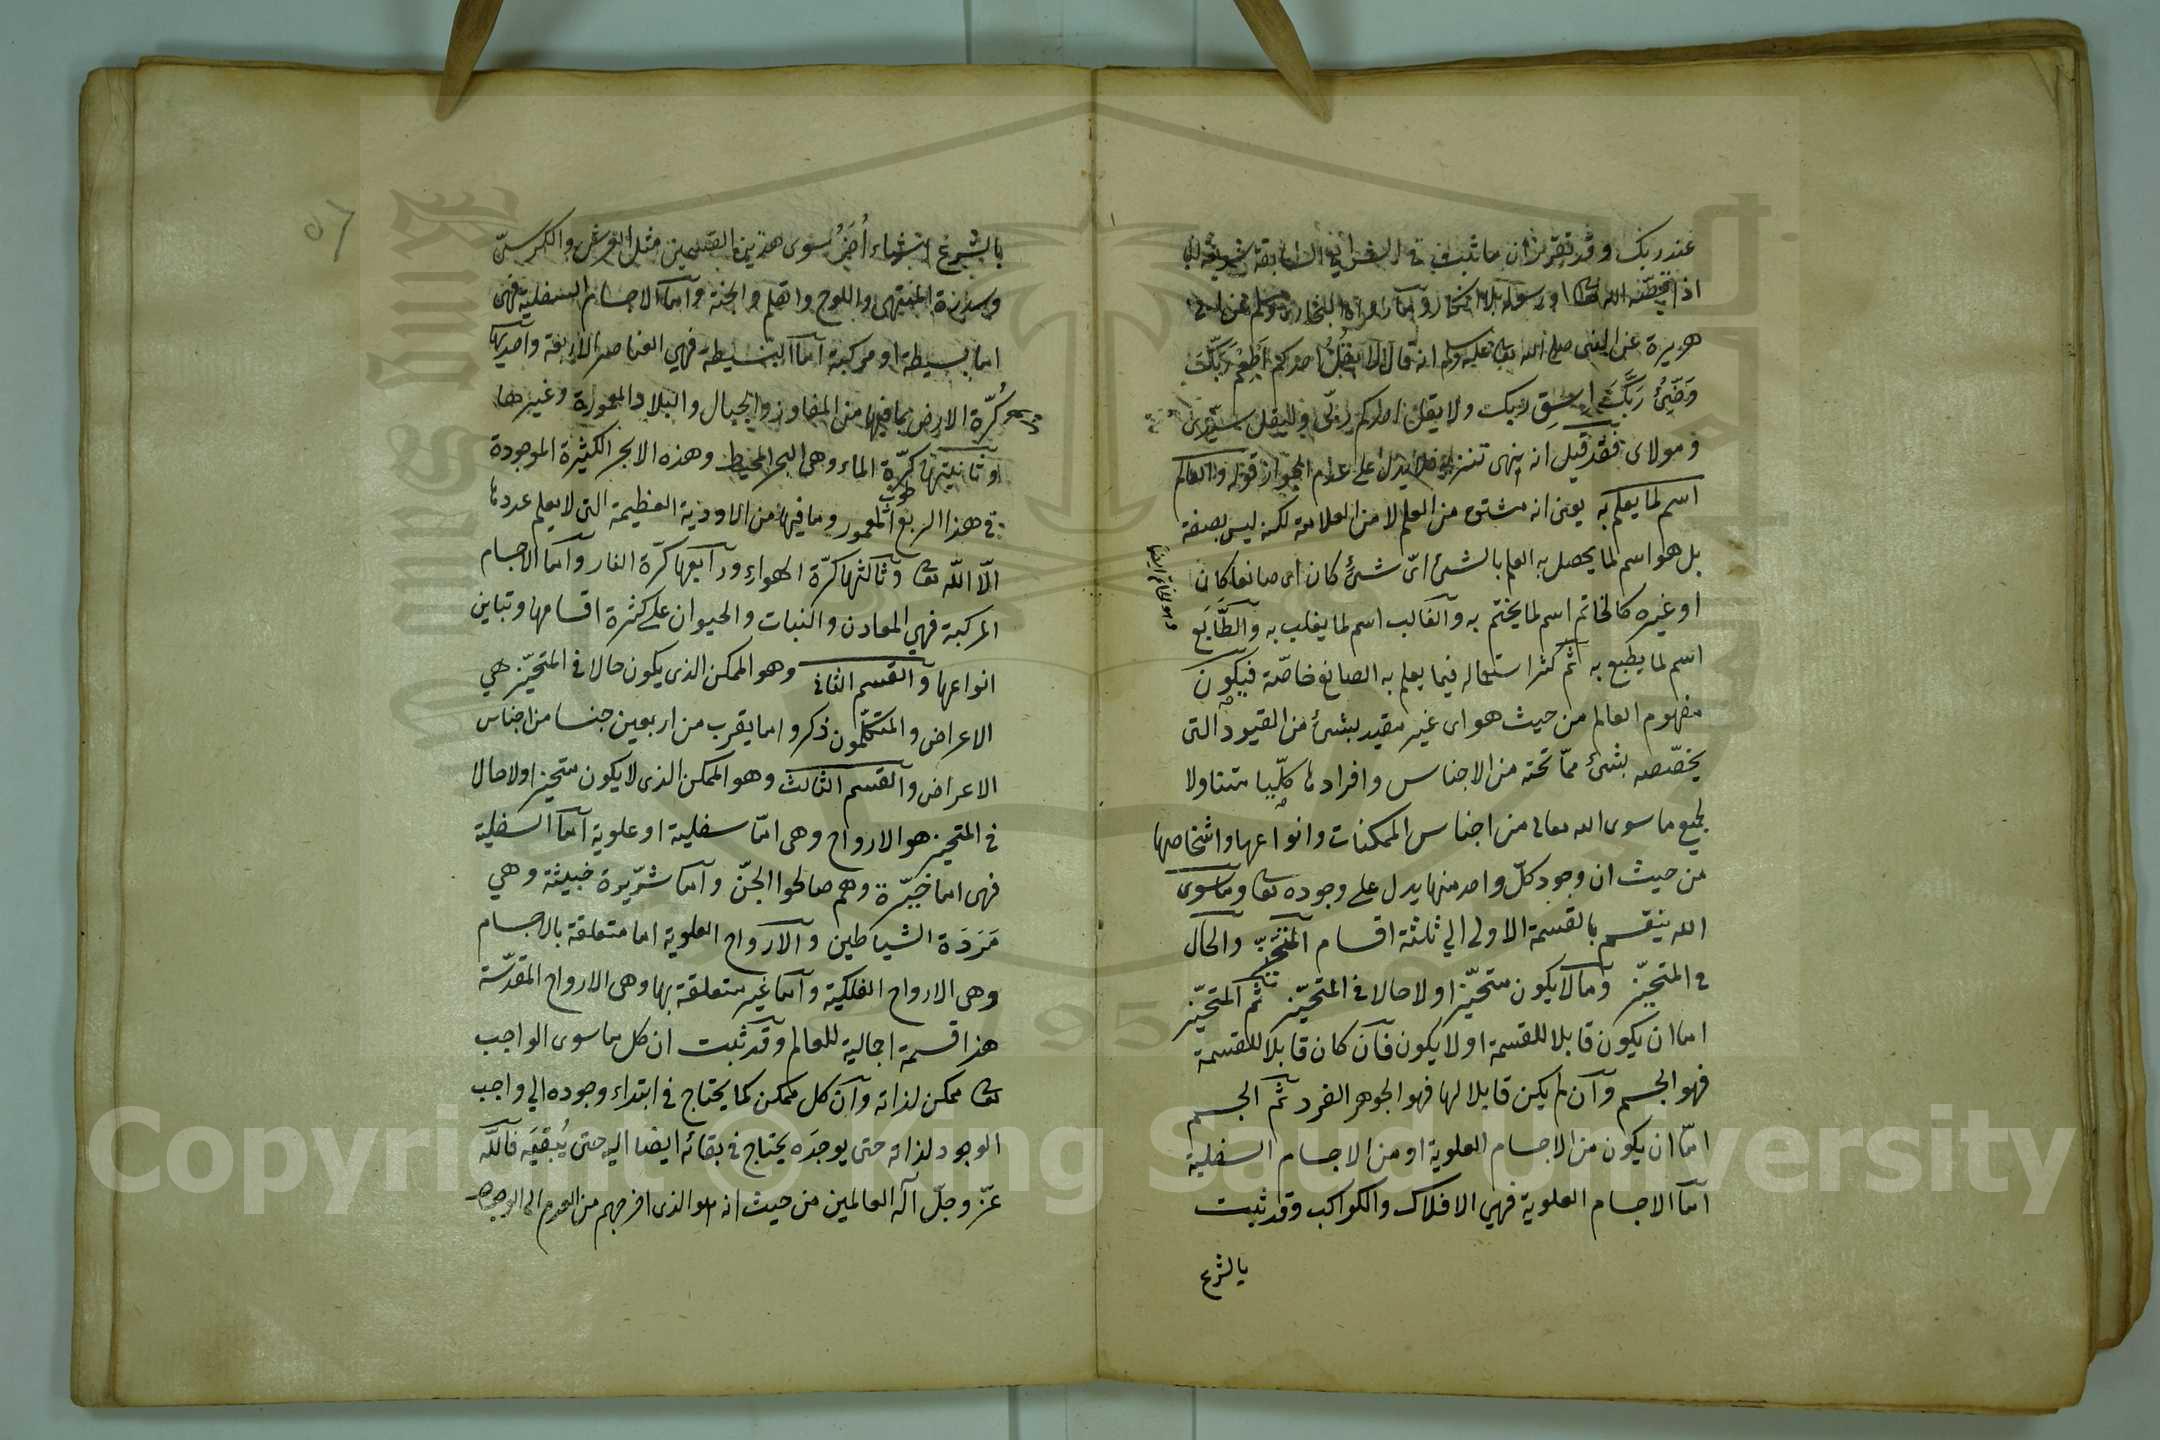 عند ربك وقد تقرر ان ما ثبت في الشرائع السابقة شريعة لنا
اذا قصّه الله تعا او رسوله بلا انكار وآما ما رواه البخارى ومسلم عن ابى
هريرة عن النبى صلى الله تعا عليه وسلم انه قال لا يقل احدكم اَطْعِمْ رَبَّكَ
وَضِّئْ رَبَّكَ اِسْقِ ربك ولا يقل احدكم ربّى وليقل سيّدى
ومولاى فقد قيل انه نهى تنزيه فلا يدل على عدم الجواز قوله والعالم
اسم لما يعلم به يعنى انه مشتق من العلم لا من العلامة لكنه ليس بصفة
بل هو اسم لما يحصل به العلم بالشئ اىّ شئ كان اى صانعا كان
او غيره كالخاتم اسم لما يختم به والقالب اسم لما يقلب به والطَّابَع
وهو الخاتم ايضا
اسم لما يطبع به ثم كثر استعماله فيما يعلم به الصانع خاصّة فيكون
مفهوم العالم من حيث هو اى غير مقيد بشئ من القيود التى
يخصّصه بشئ ممّا تحته من الاجناس وافرادها كلّيا متناولا
لجميع ما سوى الله تعالى من اجناس الممكنات وانواعها واشخاصها
من حيث ان وجود كلّ واحد منها يدل على وجوده تعا وما سوى
الله ينقسم بالقسمة الاولى الي ثلثة اقسام المتحيّز والحالّ
في المتحيّز وما لا يكون متحيّزا ولا حالا في المتحيّز ثم المتحيّز
اما ان يكون قابلا للقسمة او لا يكون فان كان قابلا للقسمة
فهو الجسم وان لم يكن قابلا لها فهو الجوهر الفرد ثم الجسم
امّا ان يكون من الاجسام العلوية او من الاجسام السفلية
اما الاجسام العلوية فهي الافلاك والكواكب وقد ثبت
بالشرع
٥٦
بالشرع اشياء اُخَرُ سوى هذين القسمين مثل العرش والكرسىّ
وسدرة المنتهى واللوح والقلم والجنة وآما الاجسام السفلية فهى
اما بسيطة او مركبة اما البسيطة فهي العناصر الاربعة واحديها
كُرّة الارض بما فيها من المفاوز والجبال والبلاد المعمورة وغيرها
وثانيتها كرّة الماء وهى البحر المحيط وهذه الابحر الكثيرة الموجودة
في هذا الربع المعمور وما فيها من الاودية العظيمة التى لا يعلم عددها
الّا الله تعا وثالثها كرّة الهواءِ ورابعها كرّة النار واما الاجسام
المركبة فهي المعادن والنبات والحيوان على كثرة اقسامها وتباين
انواعها والقسم الثانى وهو الممكن الذى يكون حالا في المتحيّز هي
الاعراض والمتكلّمون ذكروا ما يقرب من اربعين جنسا من اجناس
الاعراض والقسم الثالث وهو الممكن الذى لا يكون متحيزا ولا حالا
في المتحيز هو الارواح وهى امّا سفلية او علوية اما السفلية
فهى اما خيّرة وهم صالحوا الجنّ واما شرّيرة خبيثة وهي
مَرَدَة الشياطين والارواح العلوية اما متعلقة بالاجسام
وهى الارواح الفلكية واما غير متعلقة بها وهى الارواح المقدّسة
هذا قسمة اجمالية للعالم وقد ثبت ان كل ما سوى الواجب
تعا ممكن لذاته وان كل ممكن كما يحتاج في ابتداء وجوده الي واجب
الوجود لذاته حتى يوجدَه يحتاج في بقائه ايضا اليه حتى يُبْقيَه فالله
عزّ وجلّ اله العالمين من حيث انه هو الذى اخرجهم من العدم الى الوجود